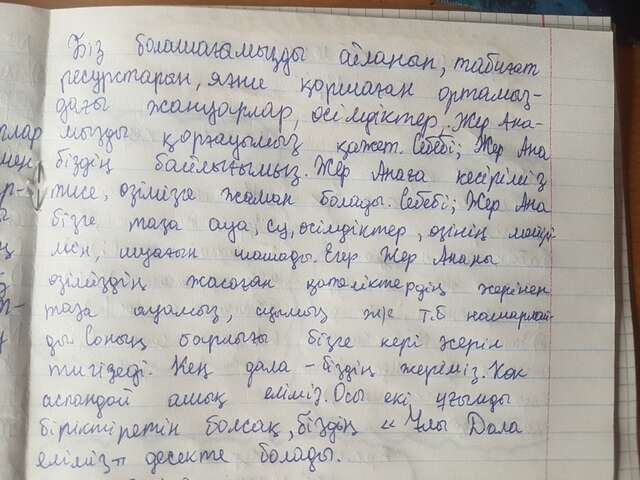 Біз болашағымызды ойланып, табиғат
ресурстарын, яғни қоршаған ортамыз-
дағы жануарлар, өсімдіктер, Жер Ана-
мызды қорғауымыз қажет. Себебі; Жер Ана
біздің байлығымыз. Жер Анаға кесіріміз
тисе, өзімізге жаман болады. Себебі; Жер Ана
бізге таза ауа, су, өсімдіктер, өзінің мейірі
мен, шуағын шашады. Егер Жер Ананы
өзіміздің жасаған қателіктердің жерінен
таза ауамыз, суымыз ж/е т.б нашарлай-
ды. Соның барлығы бізге кері әсерін
тигізеді. Кең дала - біздің жеріміз. Көк
аспандай ашық еліміз. Осы екі ұғымды
біріктіретін болсақ, біздің "Ұлы Дала
еліміз" десекте болады.
лар
мен
ер-